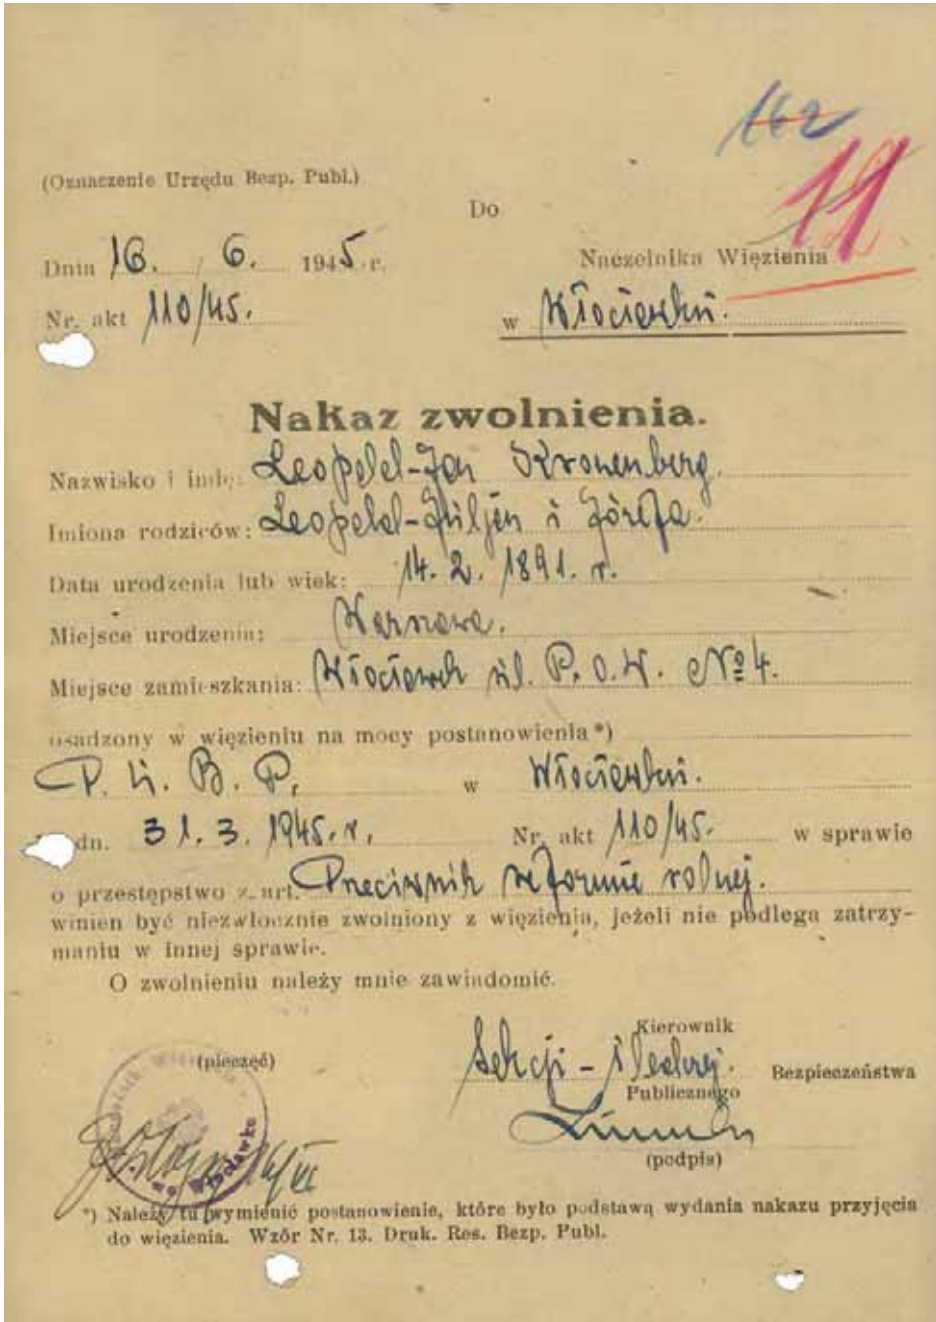 162
11
(Oznaczenie Urzędu Bezp. Publ.)
Do
Dnia 16. / 6. 1945 r.
Naczelnika Więzienia
Nr. akt 110/45.
w Włocławku.
Nakaz zwolnienia.
Nazwisko i imię: Leopold-Jan Kronenberg.
Imiona rodziców: Leopold-Juljan i Józefa.
Data urodzenia lub wiek: 14. 2. 1891. r.
Miejsce urodzenia: Warszawa.
Miejsce zamieszkania: Włocławek ul. P. O. W. № 4.
osadzony w więzieniu na mocy postanowienia*)
P. U. B. P. w Włocławku.
dn. 31. 3. 1945. r. Nr. akt 110/45. w sprawie
o przestępstwo z art. Przeciwnik reformie rolnej.
winien być niezwłocznie zwolniony z więzienia, jeżeli nie podlega zatrzy-
maniu w innej sprawie.
O zwolnieniu należy mnie zawiadomić.
Kierownik
(pieczęć)
Sekcji - Śledczej. Bezpieczeństwa
Publicznego
(podpis)
*) Należy tu wymienić postanowienie, które było podstawą wydania nakazu przyjęcia
do więzienia. Wzór Nr. 13. Druk. Res. Bezp. Publ.